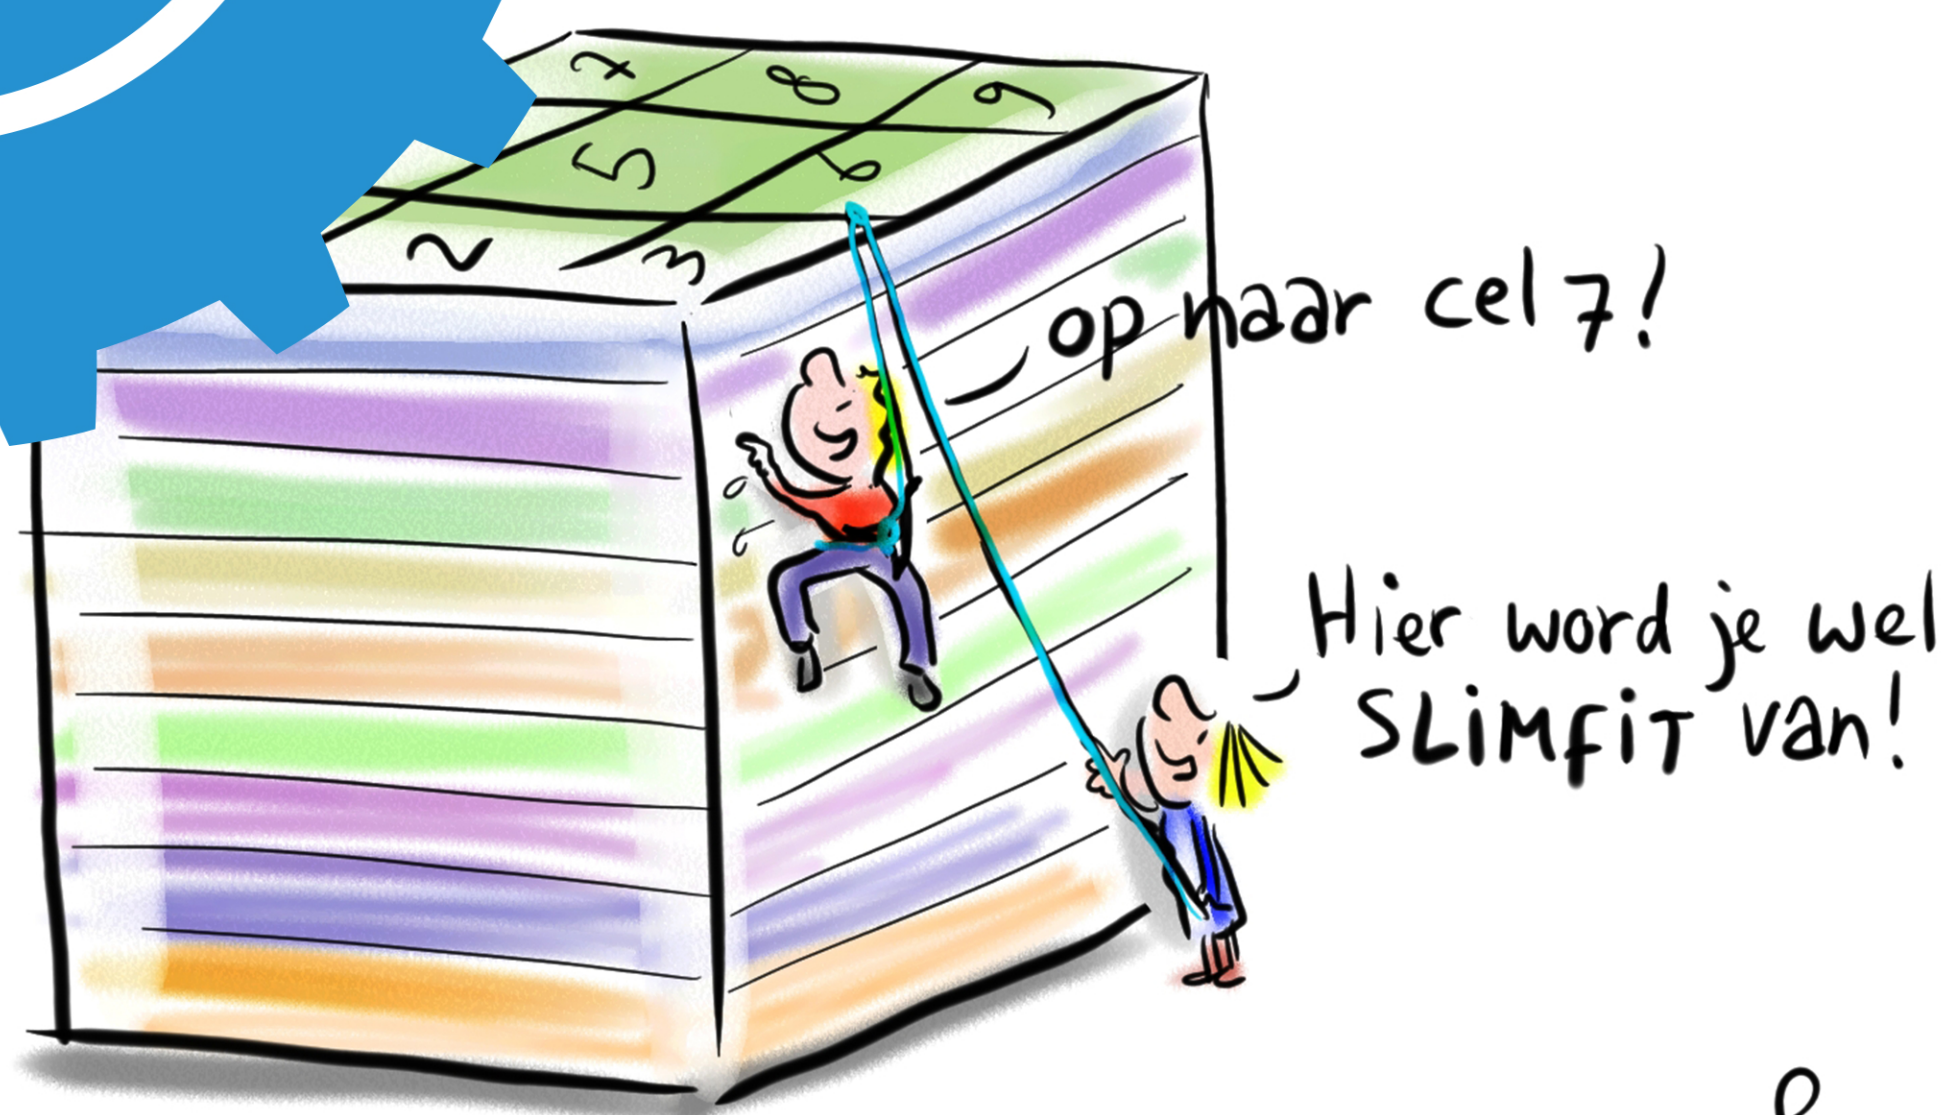 7 8 9
5 6
2 3
op naar cel 7!
Hier word je wel
SLiMFiT van!